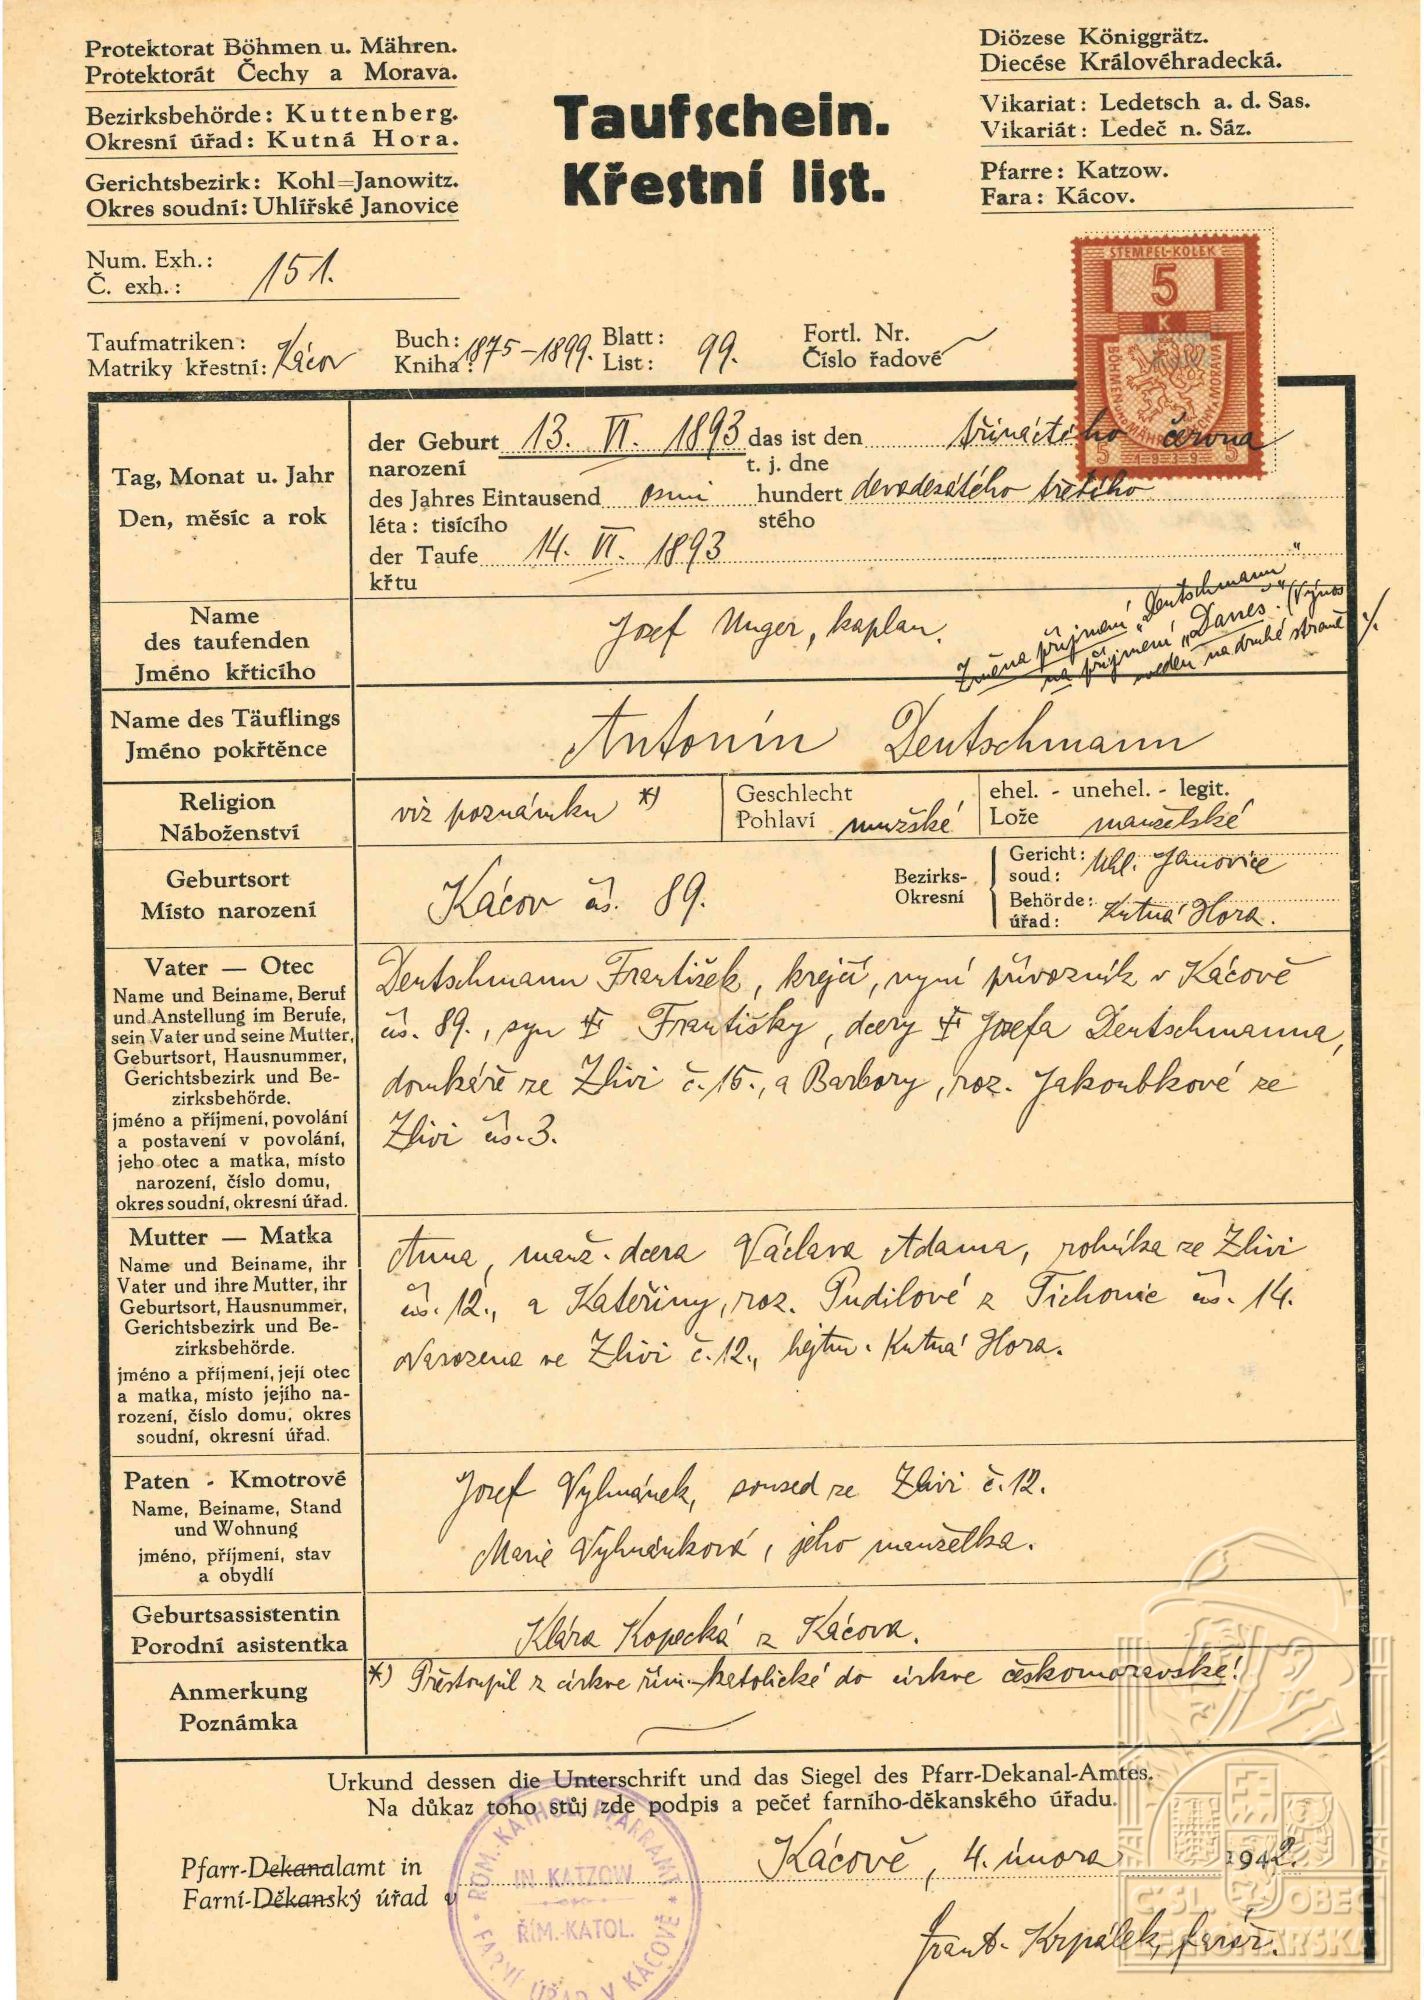 Protektorat Böhmen u. Mähren.
Protektorát Čechy a Morava.
Bezirksbehörde: Kuttenberg.
Okresní úřad: Kutná Hora.
Gerichtsbezirk: Kohl=Janowitz.
Okres soudní: Uhlířské Janovice
Num. Exh.:
Č. exh.: 151.
Taufschein.
Křestní list.
Diözese Königgrätz.
Diecése Královéhradecká.
Vikariat: Ledetsch a. d. Sas.
Vikariát: Ledeč n. Sáz.
Pfarre: Katzow.
Fara: Kácov.
STEMPEL-KOLEK
5
K
BÖHMEN UND MÄHREN ČECHY A MORAVA
5 1939 5
Taufmatriken: Buch: Blatt: Fortl. Nr.
Matriky křestní: Kácov Kniha: 1875–1899. List: 99. Číslo řadové
Tag, Monat u. Jahr
Den, měsíc a rok
der Geburt 13. VI. 1893 das ist den třináctého června
narození t. j. dne
des Jahres Eintausend osmi hundert devadesátého třetího
léta: tisícího stého
der Taufe 14. VI. 1893
křtu
Name
des taufenden
Jméno křticího
Josef Unger, kaplan.
Změna příjmení „Deutschmann“
na příjmení „Dareš“. (Výnos
uveden na druhé straně ./.
Name des Täuflings
Jméno pokřtěnce
Antonín Deutschmann
Religion
Náboženství
viz poznámku *)
Geschlecht
Pohlaví mužské
ehel. - unehel. - legit.
Lože manželské
Geburtsort
Místo narození
Kácov čís. 89.
Bezirks-
Okresní
Gericht:
soud: Uhl. Janovice
Behörde:
úřad: Kutná Hora.
Vater — Otec
Name und Beiname, Beruf
und Anstellung im Berufe,
sein Vater und seine Mutter,
Geburtsort, Hausnummer,
Gerichtsbezirk und Be-
zirksbehörde.
jméno a příjmení, povolání
a postavení v povolání,
jeho otec a matka, místo
narození, číslo domu,
okres soudní, okresní úřad.
Deutschmann František, krejčí, nyní převozník v Kácově
čís. 89., syn † Františky, dcery † Josefa Deutschmanna,
domkáře ze Zliví č. 15., a Barbory, roz. Jakoubkové ze
Zliví čís. 3.
Mutter — Matka
Name und Beiname, ihr
Vater und ihre Mutter, ihr
Geburtsort, Hausnummer,
Gerichtsbezirk und Be-
zirksbehörde.
jméno a příjmení, její otec
a matka, místo jejího na-
rození, číslo domu, okres
soudní, okresní úřad.
Anna, manž. dcera Václava Adama, rolníka ze Zliví
čís. 12., a Kateřiny, roz. Pudilové z Tichonic čís. 14.
Narozena ve Zliví č. 12., hejtm. Kutná Hora.
Paten - Kmotrové
Name, Beiname, Stand
und Wohnung
jméno, příjmení, stav
a obydlí
Josef Vyhnánek, soused ze Zliví č. 12.
Marie Vyhnánková, jeho manželka.
Geburtsassistentin
Porodní asistentka
Klára Kopecká z Kácova.
Anmerkung
Poznámka
*) Přestoupil z církve řím.-katolické do církve českomoravské!
Urkund dessen die Unterschrift und das Siegel des Pfarr-Dekanal-Amtes.
Na důkaz toho stůj zde podpis a pečeť farního-děkanského úřadu.
Pfarr-Dekanalamt in
Farní-Děkanský úřad v
Kácově, 4. února 1942.
Frant. Krpálek, farář.
RÖM. KATHOL. PFARRAMT
IN KATZOW
ŘÍM.-KATOL.
FARNÍ ÚŘAD V KÁCOVĚ
ČSL. OBEC
LEGIONÁŘSKÁ